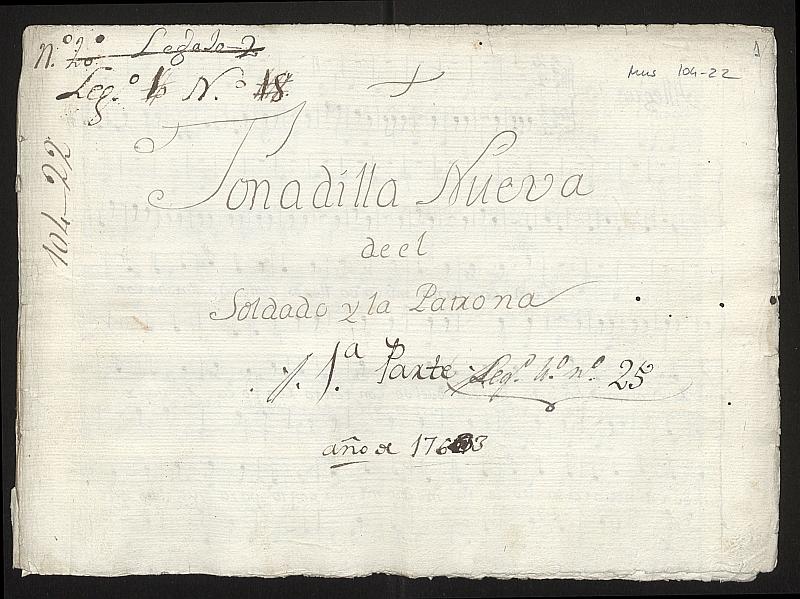 N.º 20 Legajo 2
Leg.º 1 N.º 18
Mus 104-22
104-22
Tonadilla Nueva
de el
Soldado y la Patrona
1.ª Parte Leg.º 4.º n.º 25
año de 1763